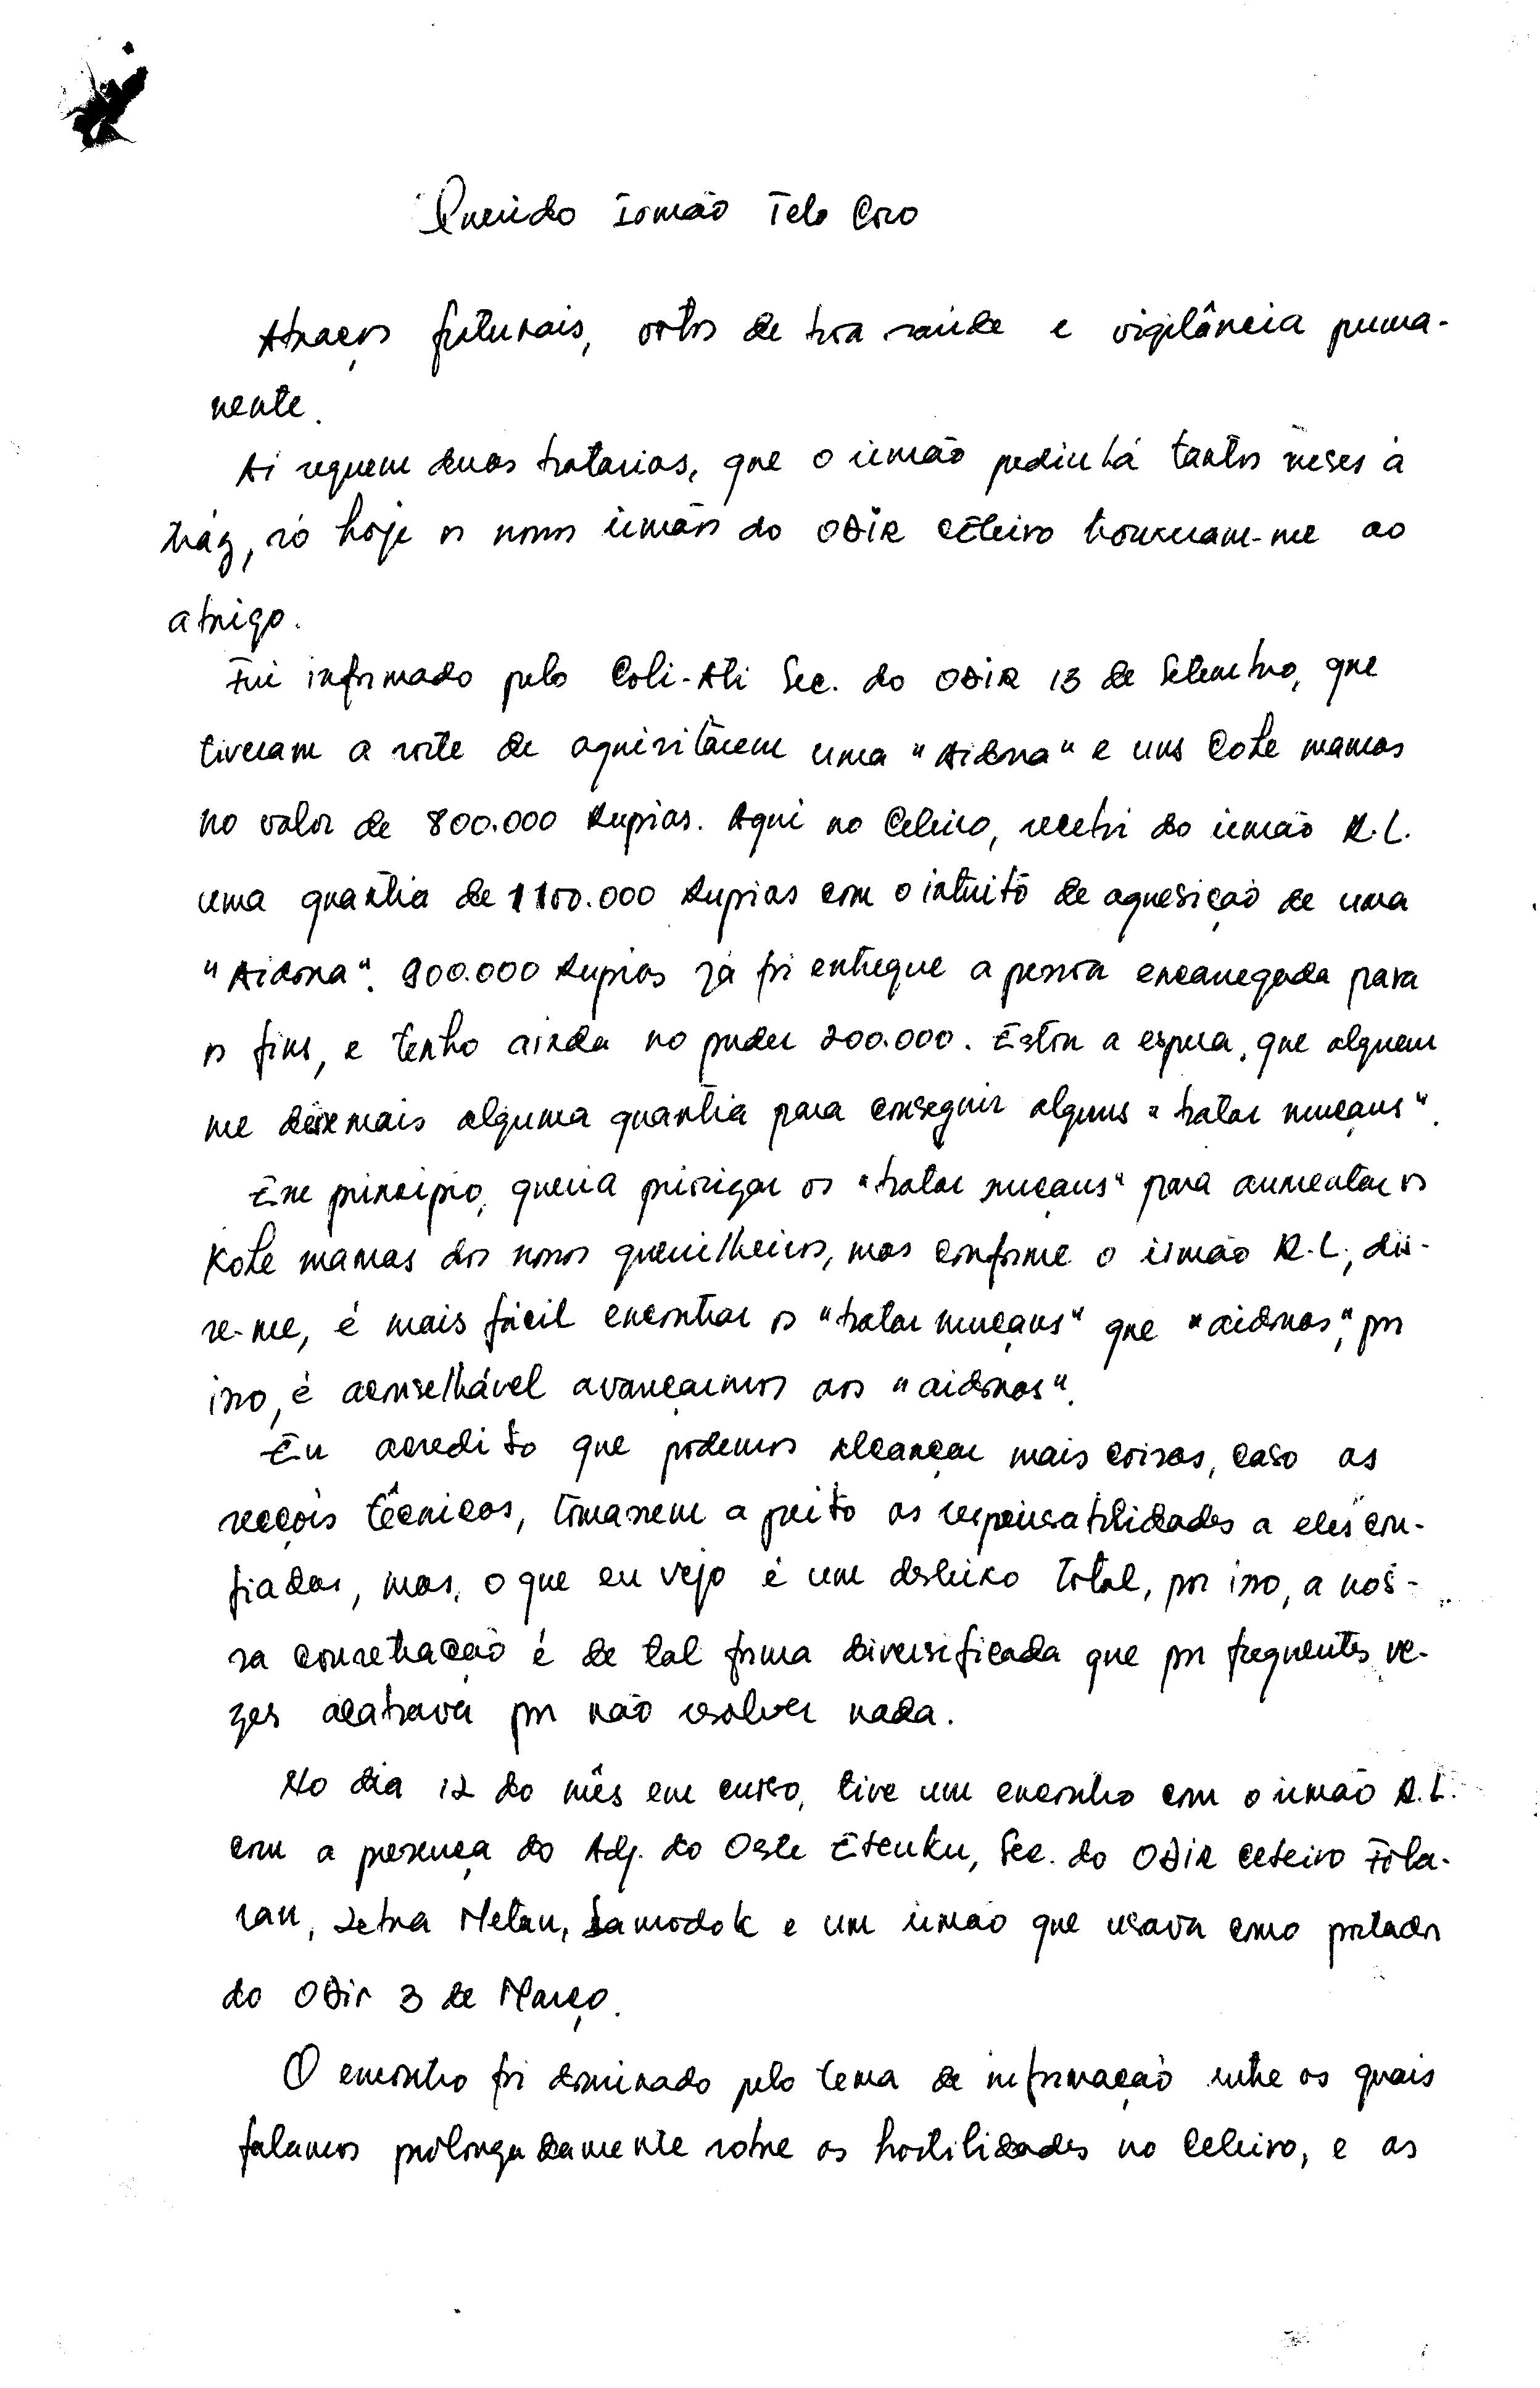 Querido Irmão Telo Coro
Abraços fraturais, votos de boa saúde e vigilância perma-
nente.
Aí seguem duas baterias, que o irmão pediu há tantos mêses à
tráz, só hoje os nosso irmãos do ODIR Celeiro trouxeram-me ao
abrigo.
Fui informado pelo Coli-Ali Sec. do ODIR 13 de Setembro, que
tiveram a sorte de aquisitarem uma "Aidona" e uns Cole mamas
no valor de 800.000 Rupias. Aqui no Celeiro, recebi do irmão R.L.
uma quantia de 1100.000 Rupias com o intuito de aquesição de uma
"Aidona". 900.000 Rupias já foi entregue a pessoa encarregada para
os fins, e tenho ainda no puder 200.000. Estou a espera, que alguem
me deixe mais alguma quantia para conseguir alguns "batar mucans".
Em principio, queria priorizar os "batar mucans" para aumentar os
Kole mamas dos nossos guerrilheiros, mas conforme o irmão R.L., dis-
se-me, é mais fácil encontrar os "batar mucans" que "aidonas", por
isso, é aconselhável avançarmos aos "aidonas".
Eu acredito que podemos alcançar mais coisas, caso as
secçois técnicas, tomassem a peito as responsabilidades a eles con-
fiadas, mas, o que eu vejo é um desleixo total, por isso, a nos-
sa concetração é de tal forma diversificada que por frequentes ve-
zes acabava por não resolver nada.
No dia 12 do mês em curso, tive um encontro com o irmão R.L.
com a presença do Adj. do Oeste Eteuku, Sec. do ODIR Celeiro Fola-
ran, Letra Metan, Samodok e um irmão que usava como portador
do ODir 3 de Março.
O encontro foi dominado pelo tema de informação entre os quais
falamos prolongadamente sobre as hostilidades no Celeiro, e as